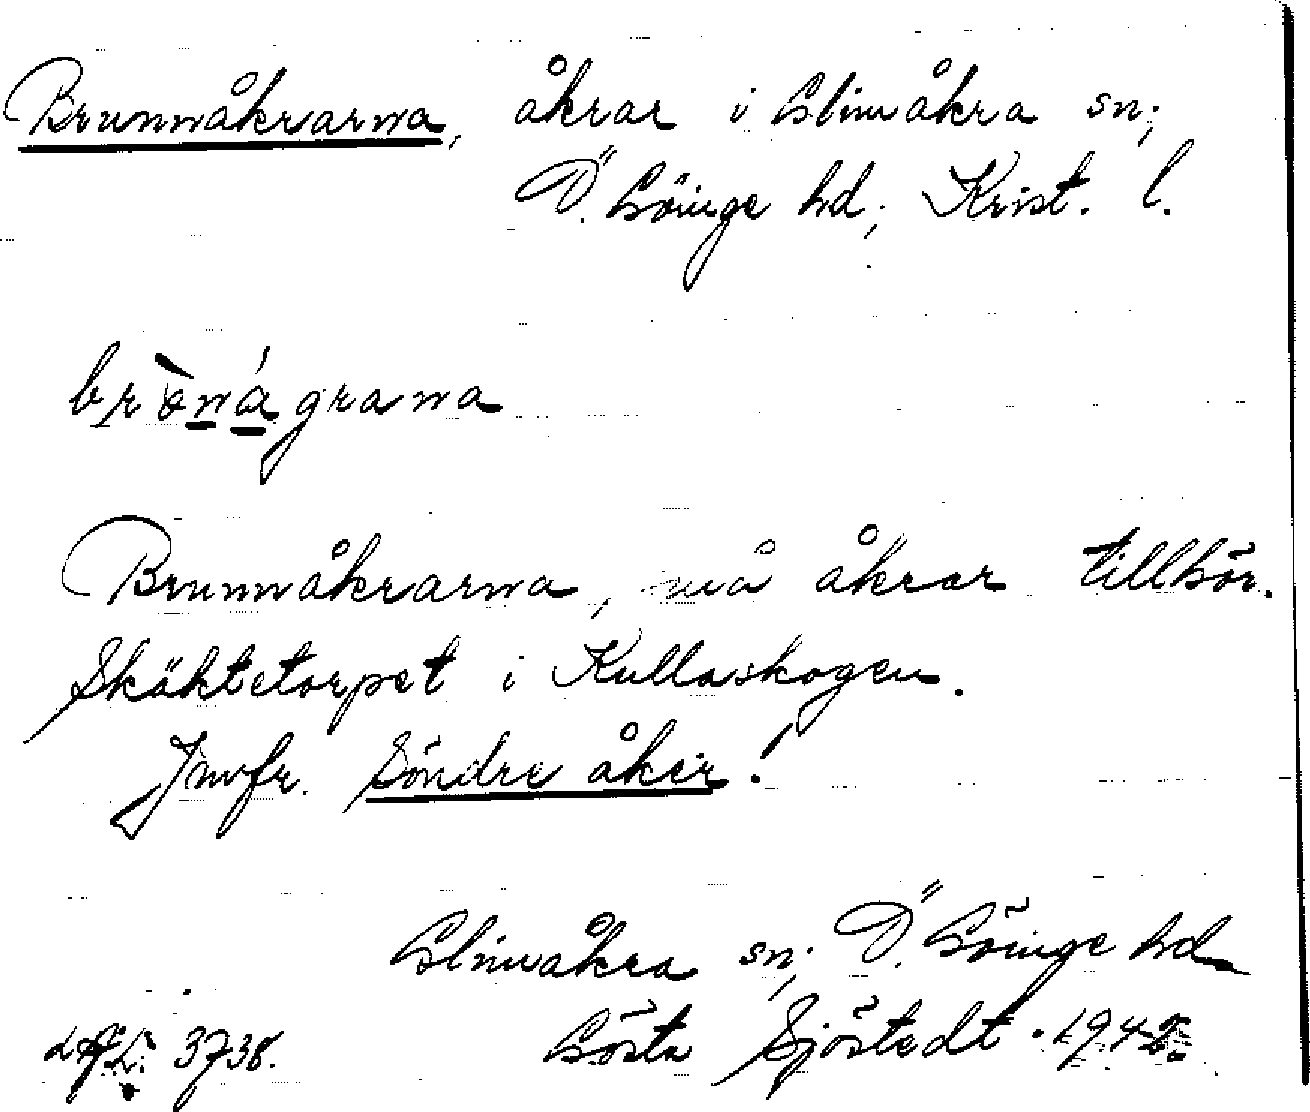 Brunnåkrarna, åkrar i Glimåkra sn;
Ö. Göinge hd; Krist. l.
brònágrana
Brunnåkrarna, små åkrar tillhör.
Skäktetorpet i Kullaskogen.
Jmfr. Söndre åker!
Glimåkra sn; Ö. Göinge hd
3738. Gösta Sjöstedt. 1942.